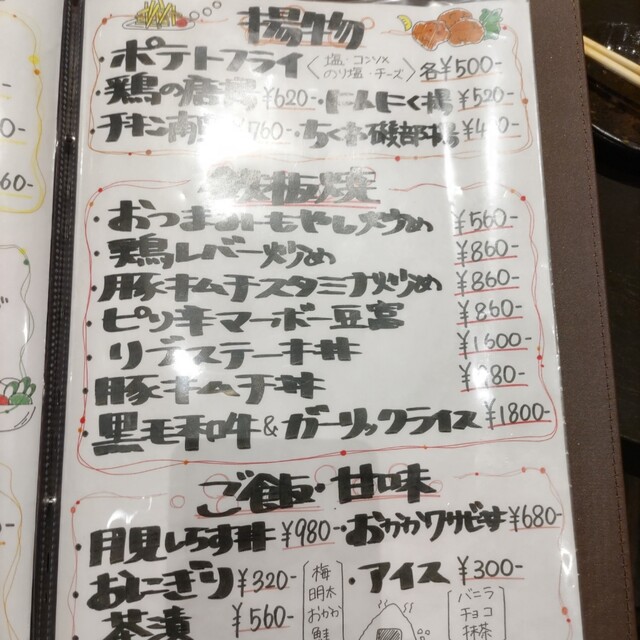 揚物
・ポテトフライ〈塩・コンソメ のり塩・チーズ〉各¥500-
・鶏の唐揚 ¥620-・にんにく揚 ¥520-
・チキン南 760-・ちくわ磯部揚
鉄板焼
・おつまみもやし炒め ¥560-
・鶏レバー炒め ¥860-
・豚キムチスタミナ炒め ¥860-
・ピリ辛マーボー豆腐 ¥860-
・リブステーキ丼 ¥1600-
・豚キムチ丼
・黒毛和牛&ガーリックライス ¥1800-
ご飯・甘味
・月見しらす丼 ¥980-・おかかワサビ ¥680-
・おにぎり ¥320-[梅 明太 おかか 鮭]・アイス ¥300-[バニラ チョコ 抹茶]
・茶漬 ¥560-
60-